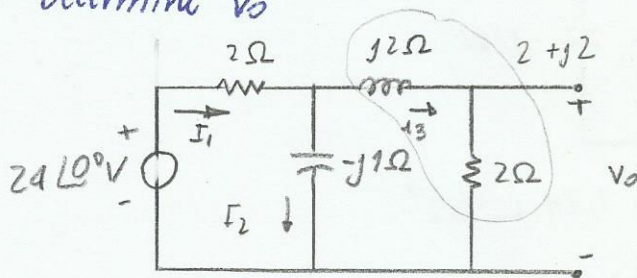 determine Vo
2Ω
j2Ω
2 + j2
+
I₁
I3
+
24 ∠0° V
-
-j1Ω
2Ω
Vo
I₂
-